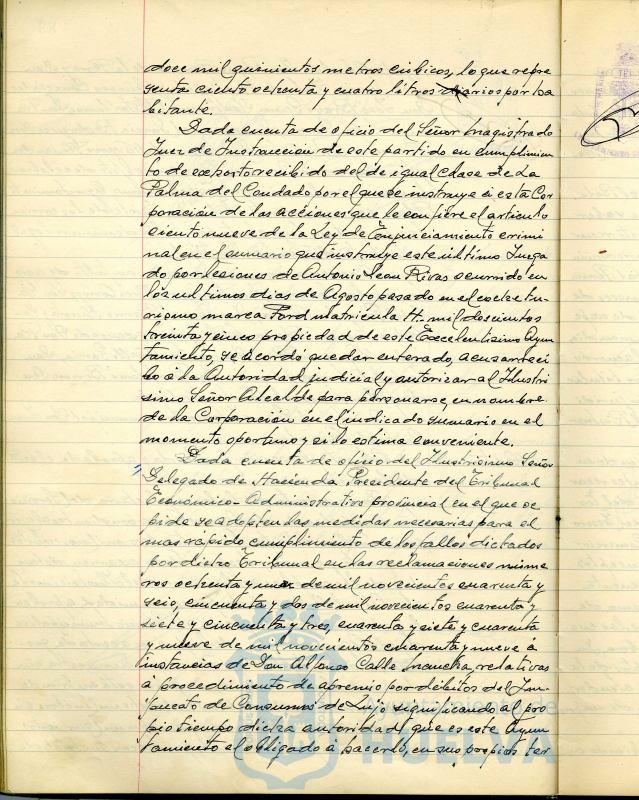 doce mil quinientos metros cúbicos, lo que repre
senta ciento ochenta y cuatro litros diarios por ha
bitante.
Dada cuenta de oficio del Señor Magistrado
Juez de Instrucción de este partido en cumplimien
to de exhorto recibido del de igual clase de La
Palma del Condado por el que se instruye á esta Cor
poración de las acciones que le confiere el artículo
ciento nueve de la Ley de Enjuiciamiento crimi
nal en el sumario que instruye este último Juzga
do por lesiones de Antonio Leon Rivas ocurrido en
los ultimos dias de Agosto pasado en el coche tu-
rismo marca Ford matrícula H.- mil doscientos
treinta y cinco propiedad de este Excelentisimo Ayun
tamiento, se acordó quedar enterado, acusar reci
bo á la Autoridad judicial y autorizar al Ilustri
simo Señor Alcalde para personarse, en nombre
de la Corporación en el indicado sumario en el
momento oportuno y si lo estima conveniente.
Dada cuenta de oficio del Ilustrisimo Señor
Delegado de Hacienda Presidente del Tribunal
Económico-Administrativo provincial en el que se
pide se adopten las medidas necesarias para el
mas rapido cumplimiento de los fallos dictados
por dicho Tribunal en las reclamaciones núme
ros ochenta y uno de mil novecientos cuarenta y
seis, cincuenta y dos de mil novecientos cuarenta y
siete y cincuenta y tres, cuarenta y siete y cuarenta
y nueve de mil novecientos cuarenta y nueve á
instancias de Don Alfonso Calle relativas
á procedimiento de apremio por débitos del Im-
puesto de Consumos de Lujo significando al pro
pio tiempo dicha autoridad que es este Ayun
tamiento el obligado á hacerlo, en sus propios ter
HUELVA